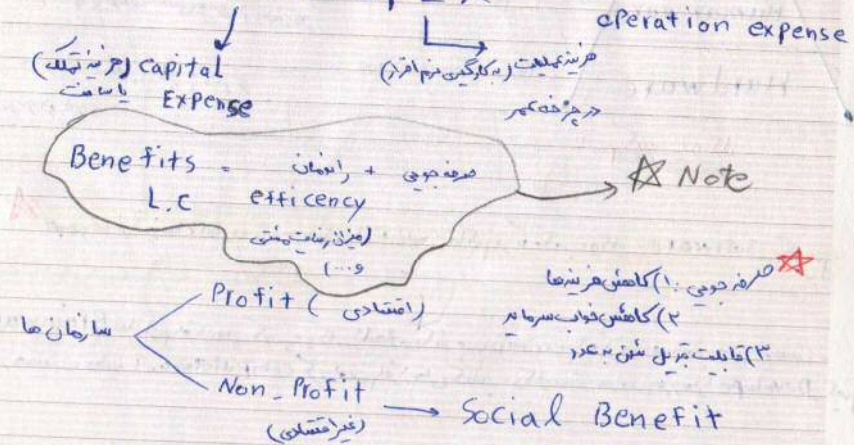 operation expense
(هزینه تملک یا ساخت) Capital Expense
هزینه عملیات (به کارگیری نرم افزار)
در چرخه عمر
Benefits = صرفه جویی + راندمان
L.C efficency
(میزان رضایت مشتی
و...)
☆ Note
☆ صرفه جویی: ۱) کاهش هزینه‌ها
۲) کاهش خواب سرمایه
۳) قابلیت تبدیل شدن به
سازمان ها
Profit (اقتصادی)
Non-Profit → Social Benefit
(غیر اقتصادی)
Hardware